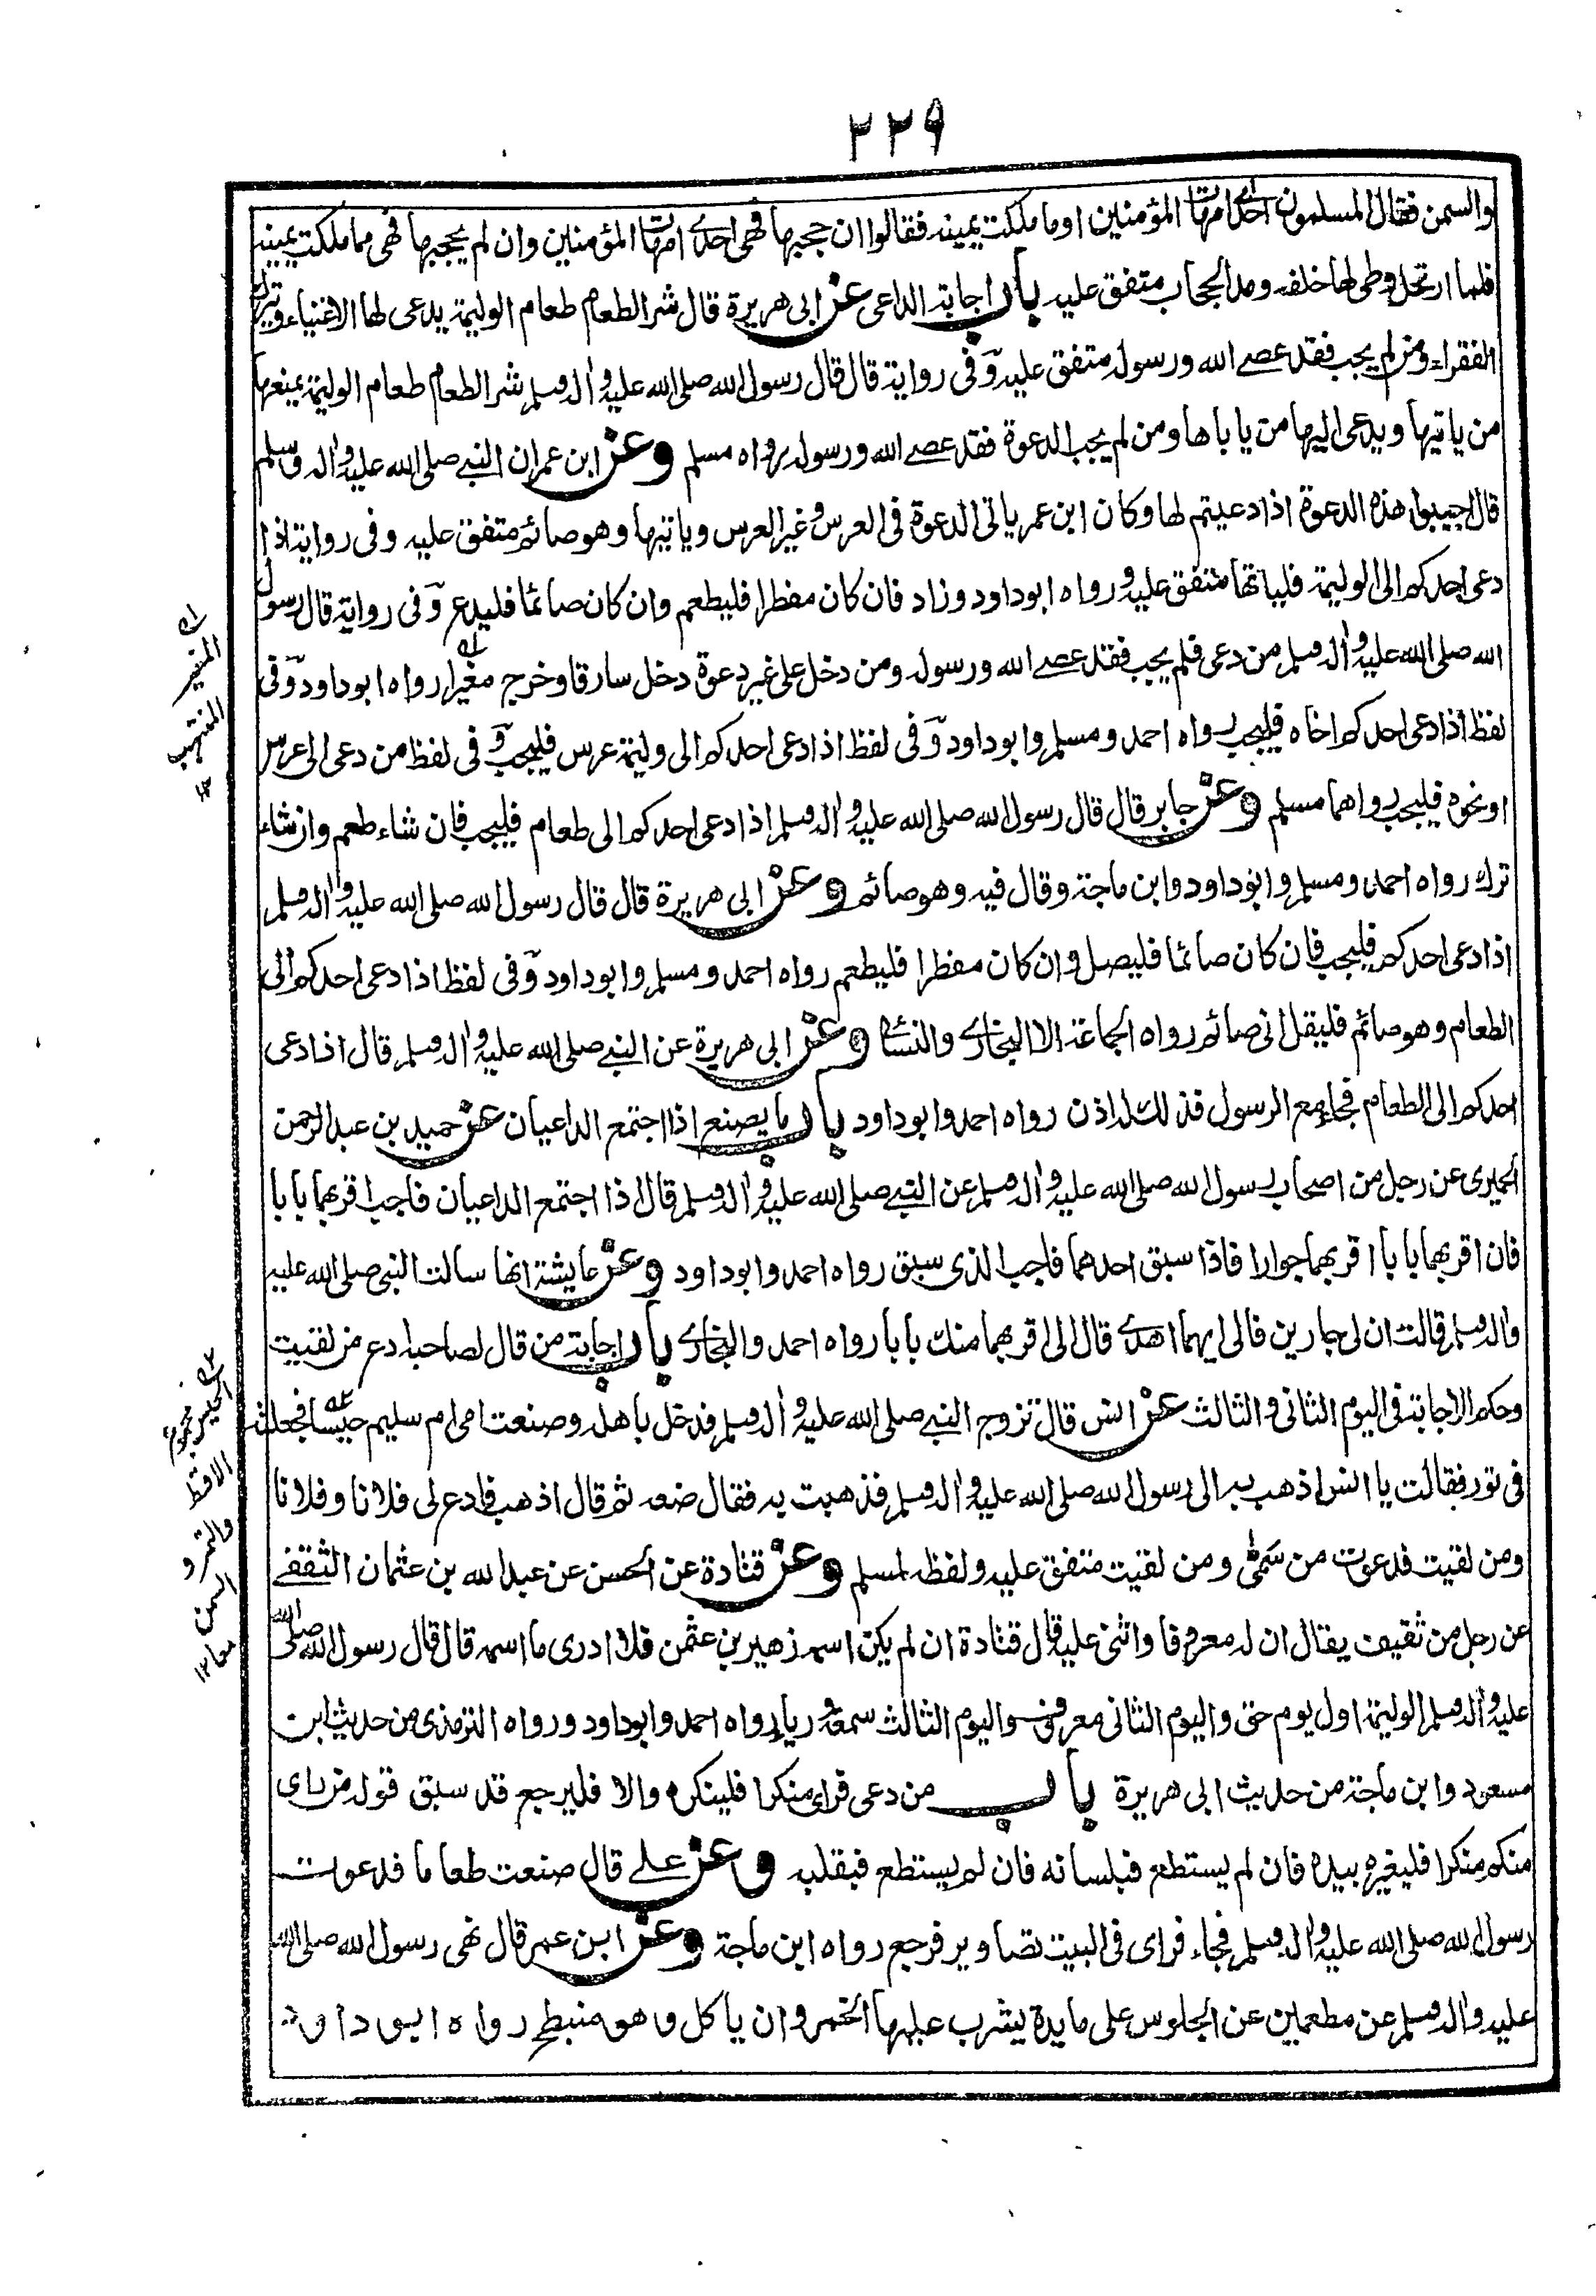 ٢٢٩
والسمن فقال المسلمون احدى امهات المؤمنين او ما ملكت يمينه فقالوا ان حجبها فهى احدى امهات المؤمنين وان لم يحجبها فهى مما ملكت يمينه
فلما ارتحل وطى لها خلفه ومد الحجاب متفق عليه باب اجابة الداعى عن ابى هريرة قال شر الطعام طعام الوليمة يدعى لها الاغنياء وتترك
الفقراء ومن لم يجب فقد عصى الله ورسوله متفق عليه وفى رواية قال قال رسول الله صلى الله عليه واله وسلم شر الطعام طعام الوليمة يمنعها
من ياتيها ويدعى اليها من يا باها ومن لم يجب الدعوة فقد عصى الله ورسوله رواه مسلم وعن ابن عمر ان النبى صلى الله عليه واله وسلم
قال اجيبوا هذه الدعوة اذا دعيتم لها وكان ابن عمر ياتى الدعوة فى العرس وغير العرس وياتيها وهو صائم متفق عليه وفى رواية اذا
دعى احدكم الى الوليمة فلياتها متفق عليه ورواه ابوداود وزاد فان كان مفطرا فليطعم وان كان صائما فليدع وفى رواية قال رسول
الله صلى الله عليه واله وسلم من دعى فلم يجب فقد عصى الله ورسوله ومن دخل على غير دعوة دخل سارقا وخرج مغيرا رواه ابوداود وفى
لفظ اذا دعى احدكم اخاه فليجب رواه احمد ومسلم وابوداود وفى لفظ اذا دعى احدكم الى وليمة عرس فليجب وفى لفظ من دعى الى عرس
او نحوه فليجب رواهما مسلم وعن جابر قال قال رسول الله صلى الله عليه واله وسلم اذا دعى احدكم الى طعام فليجب فان شاء طعم وان شاء
ترك رواه احمد ومسلم وابوداود وابن ماجة وقال فيه وهو صائم وعن ابى هريرة قال قال رسول الله صلى الله عليه واله وسلم
اذا دعى احدكم فليجب فان كان صائما فليصل وان كان مفطرا فليطعم رواه احمد ومسلم وابوداود وفى لفظ اذا دعى احدكم الى
الطعام وهو صائم فليقل انى صائم رواه الجماعة الا البخارى والنسائى وعن ابى هريرة عن النبى صلى الله عليه واله وسلم قال اذا دعى
احدكم الى الطعام فجاء مع الرسول فذلك له اذن رواه احمد وابوداود باب ما يصنع اذا اجتمع الداعيان عن حميد بن عبد الرحمن
الحميرى عن رجل من اصحاب رسول الله صلى الله عليه واله وسلم عن النبى صلى الله عليه واله وسلم قال اذا اجتمع الداعيان فاجب اقربهما بابا
فان اقربهما بابا اقربهما جوارا فاذا سبق احدهما فاجب الذى سبق رواه احمد وابوداود وعن عايشة انها سالت النبى صلى الله عليه
واله وسلم قالت ان لى جارين فالى ايهما اهدى قال الى اقربهما منك بابا رواه احمد والبخارى باب اجابة من قال لصاحبه ادع من لقيت
وحكم الاجابة فى اليوم الثانى والثالث عن انس قال تزوج النبى صلى الله عليه واله وسلم فدخل باهله وصنعت امى ام سليم حيسا فجعلته
فى تور فقالت يا انس اذهب به الى رسول الله صلى الله عليه واله وسلم فذهبت به فقال ضعه ثم قال اذهب فادع لى فلانا وفلانا
ومن لقيت فدعوت من سمى ومن لقيت متفق عليه ولفظه لمسلم وعن قتادة عن الحسن عن عبد الله بن عثمان الثقفى
عن رجل من ثقيف يقال ان له معروفا واثنى عليه قال قتادة ان لم يكن اسمه زهير بن عثمن فلا ادرى ما اسمه قال قال رسول الله صلى الله
عليه واله وسلم الوليمة اول يوم حق واليوم الثانى معروف واليوم الثالث سمعة ورياء رواه احمد وابوداود ورواه الترمذى من حديث ابن
مسعود وابن ماجة من حديث ابى هريرة باب من دعى فراى منكرا فلينكره والا فليرجع قد سبق قوله من راى
منكم منكرا فليغيره بيده فان لم يستطع فبلسانه فان لم يستطع فبقلبه وعن على قال صنعت طعاما فدعوت
رسول الله صلى الله عليه واله وسلم فجاء فراى فى البيت تصاوير فرجع رواه ابن ماجة وعن ابن عمر قال نهى رسول الله صلى الله
عليه واله وسلم عن مطعمين عن الجلوس على مايدة يشرب عليها الخمر وان ياكل وهو منبطح رواه ابوداود
المغير
المنتهب
١٢
الحيس مجموع
الاقط
والتمر و
السمن
معا ١٢